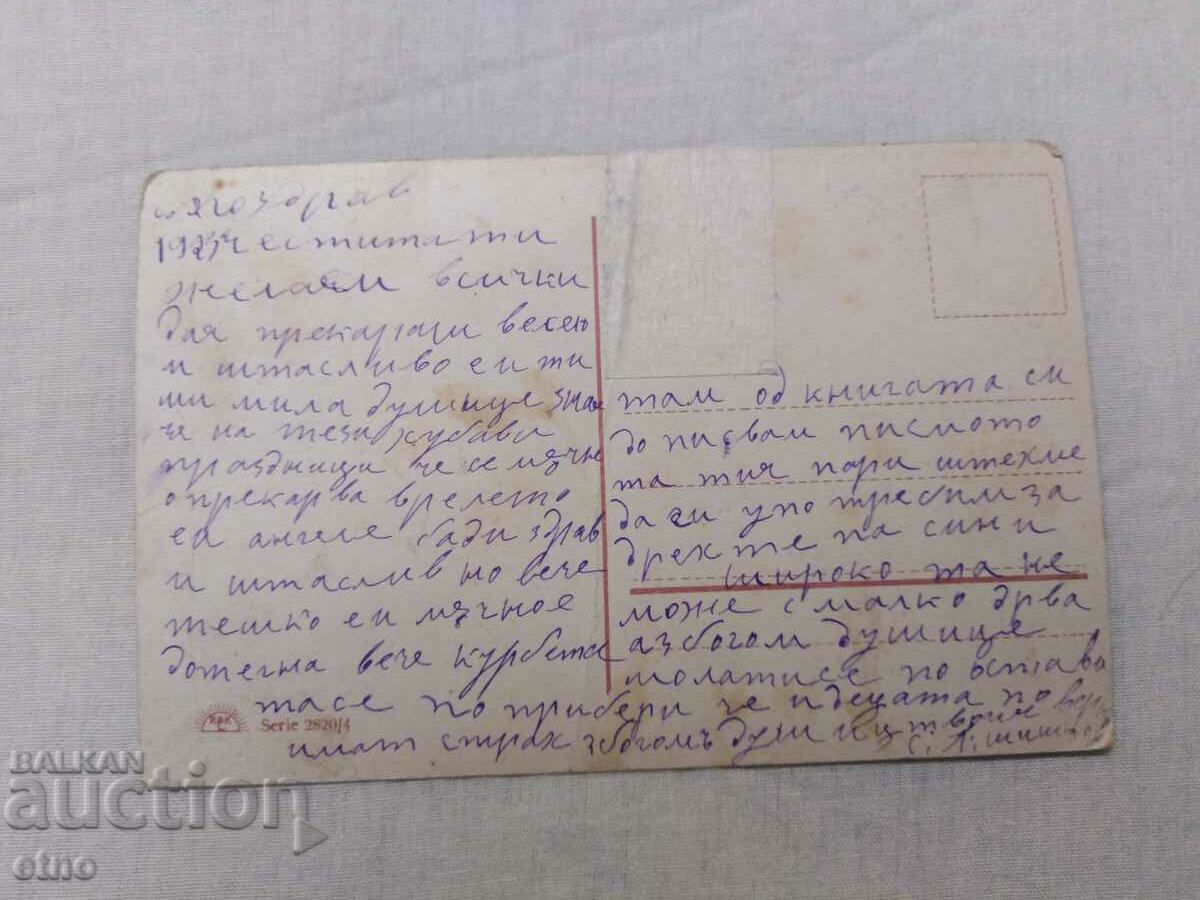 поздрав
честитати
желаем всички
дая прекараши весело
и штасливо си ти
ми мила душице знае
че на тези хубави
праздници че се мячн
о прекарва времето
ей ангеле бади здрав
и штаслив но вече
тешко ей мячное
дотегна вече курбета
тасе по прибери че идецата по
имат страх збогомъ душиц
там од книгата си
до писвам писмото
та тия пари штехме
да си употребим за
дрехте па сини
широко та не
може с малко дрва
азбогом душице
молатисе по остави
KBK
Serie 2820/4
BALKAN
auction
etno